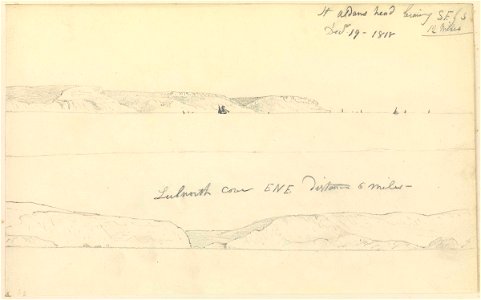 St Aldans head bearing S.E b S
Dec 19 - 1818 12 miles
Lulworth cove ENE Distance 6 miles -